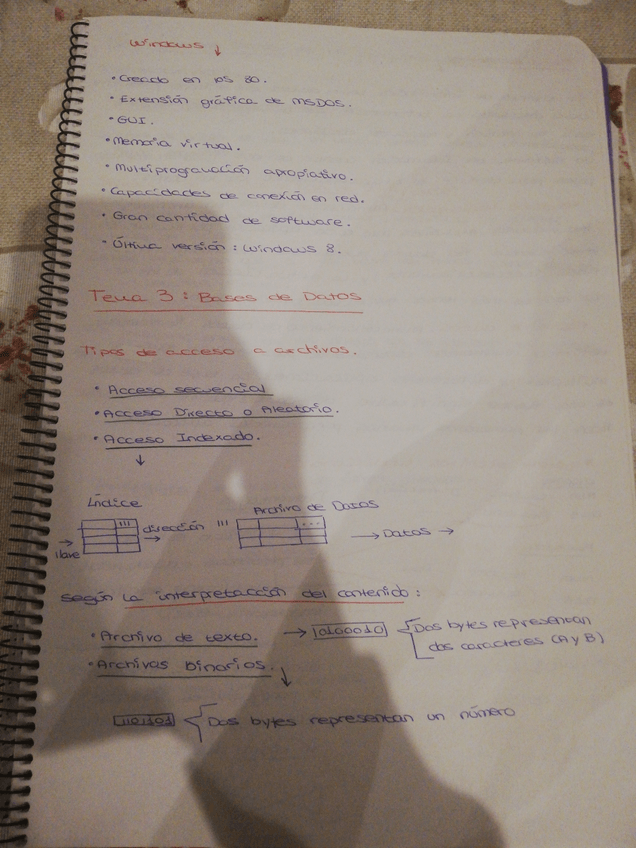 Windows ↓
• Creado en los 80.
• Extensión gráfica de MSDOS.
• GUI.
• Memoria virtual.
• Multiprogramación apropiativo.
• Capacidades de conexión en red.
• Gran cantidad de software.
• Última versión: Windows 8.
Tema 3: Bases de Datos
Tipos de acceso a archivos.
• Acceso secuencial
• Acceso Directo o Aleatorio.
• Acceso Indexado.
↓
Índice
Archivo de Datos
→ llave
dirección →
→ Datos →
Según la interpretación del contenido:
• Archivo de texto. →
Dos bytes representan
dos caracteres (A y B)
• Archivos binarios. ↓
Dos bytes representan un número